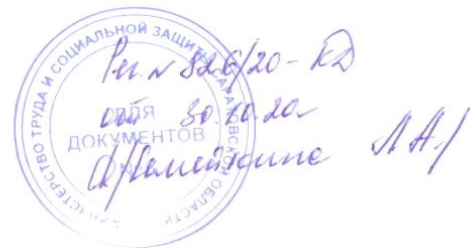 МИНИСТЕРСТВО ТРУДА И СОЦИАЛЬНОЙ ЗАЩИТЫ САРАТОВСКОЙ ОБЛАСТИ
ДЛЯ
ДОКУМЕНТОВ
Рег. № 826/20-КД
от 30.10.20г
Л.А/